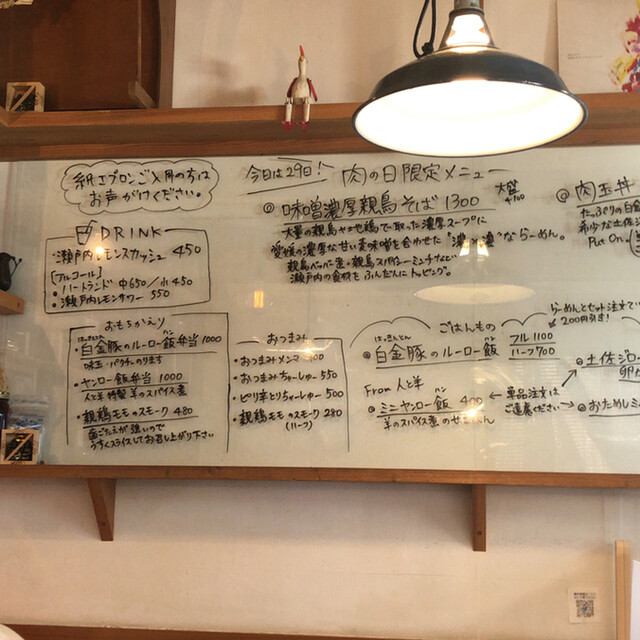 紙エプロンご入用の方は
お声がけください。
今日は29日!
肉の日限定メニュー
味噌濃厚親鳥そば 1300
大盛
+100
大量の親鳥ヤゲン鶏で取った濃厚スープに
愛媛の濃厚な甘い麦味噌を合わせた"濃×濃"ならーめん。
親鳥ペッパー煮・親鳥スパイシーミンチなど
瀬戸内の食材をふんだんにトッピング。
肉玉丼
たっぷりの白金
希少な土佐
Put On.
DRINK
・瀬戸内レモンスカッシュ 450
[アルコール]
・ハートランド 中650/小450
・瀬戸内レモンサワー 550
おもちかえり
はっきんとん
ハン
・白金豚のルーロー飯弁当 1000
味玉・パクチーのります
・ヤンロー飯弁当 1000
人と羊 特製 羊のスパイス煮
・親鶏モモのスモーク 480
歯ごたえが強いので
うすくスライスしてお召し上がり下さい
おつまみ
・おつまみメンマ 400
・おつまみちゃーしゅー 550
・ピリ辛とりちゃーしゅー 500
・親鶏モモのスモーク 280
(ハーフ)
ごはんもの
らーめんとセット注文で
200円引き!
はっきんとん
ハン
白金豚のルーロー飯
フル 1100
ハーフ 700
From 人と羊
ハン
ミニヤンロー飯 400
羊のスパイス煮のせごはん
単品注文は
ご遠慮ください
土佐ジロー
卵か
おためしミ